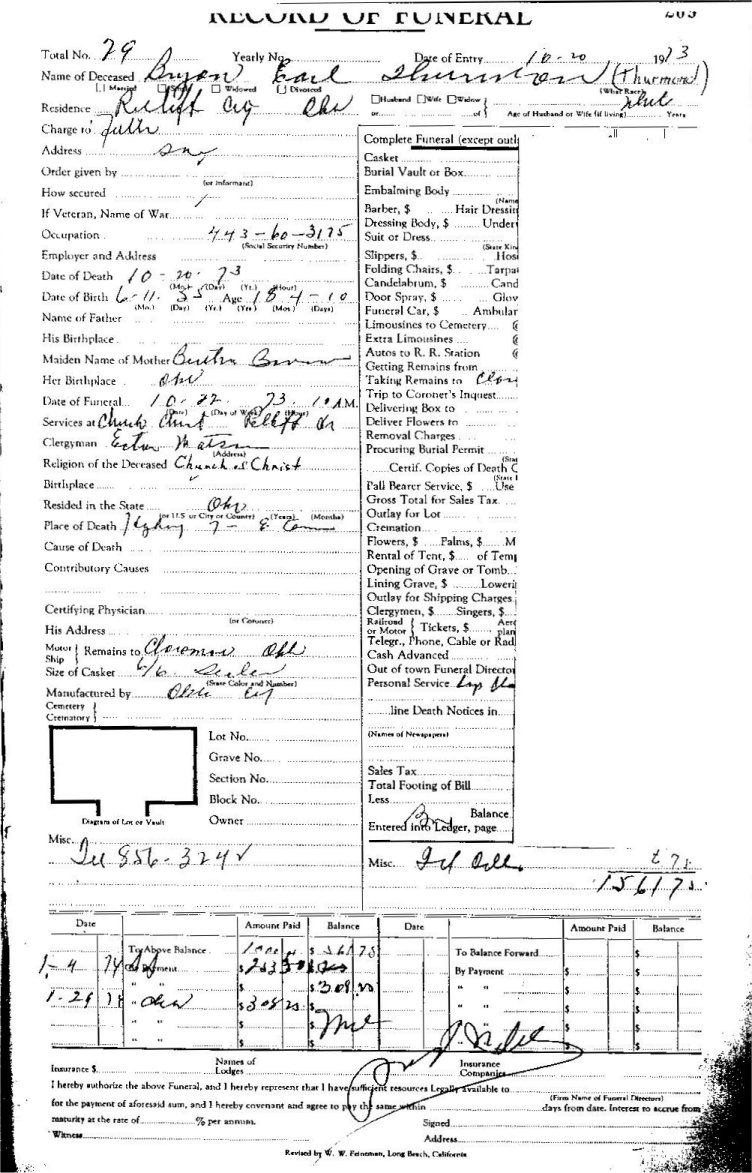 RECORD OF FUNERAL
Total No. 79 Yearly No. Date of Entry 10-20 1973
Name of Deceased Bryan Earl Thurman (Thurmond)
[ ] Married Single Widowed [ ] Divorced (What Race)
Residence City Okla Husband Wife Widow
or of Age of Husband or Wife (if living) Years
Charge to
Address
Order given by
(or Informant)
How secured
If Veteran, Name of War
Occupation 443-60-3175
(Social Security Number)
Employer and Address
Date of Death 10-20-73
(Mo.) (Day) (Yr.) (Hour)
Date of Birth 6-11-55 Age 18 4-10
(Mo.) (Day) (Yr.) (Years) (Mos.) (Days)
Name of Father
His Birthplace
Maiden Name of Mother Bertha
Her Birthplace Okla
Date of Funeral 10-22-73 10 A.M.
(Date) (Day of Week) (Hour)
Services at Church Christ
Clergyman
(Address)
Religion of the Deceased Church of Christ
Birthplace
Resided in the State Okla
(or U.S. or City or County) (Years) (Months)
Place of Death
Cause of Death
Contributory Causes
Certifying Physician
(or Coroner)
His Address
Motor Ship Remains to Claremore Okla
Size of Casket 6/6
(State Color and Number)
Manufactured by Okla City
Cemetery
Crematory
Lot No.
Grave No.
Section No.
Block No.
Diagram of Lot or Vault Owner
Misc. 856-3242
Complete Funeral (except outl
Casket
Burial Vault or Box
Embalming Body
(Name
Barber, $ Hair Dressin
Dressing Body, $ Under
Suit or Dress
(State Kin
Slippers, $ Hosi
Folding Chairs, $ Tarpa
Candelabrum, $ Cand
Door Spray, $ Glov
Funeral Car, $ Ambular
Limousines to Cemetery @
Extra Limousines @
Autos to R. R. Station @
Getting Remains from
Taking Remains to
Trip to Coroner's Inquest
Delivering Box to
Deliver Flowers to
Removal Charges
Procuring Burial Permit
(Stat
Certif. Copies of Death C
(State
Pall Bearer Service, $ Use
Gross Total for Sales Tax
Outlay for Lot
Cremation
Flowers, $ Palms, $ M
Rental of Tent, $ of Temp
Opening of Grave or Tomb
Lining Grave, $ Lowerin
Outlay for Shipping Charges
Clergymen, $ Singers, $
Railroad or Motor Tickets, $ Aero plan
Telegr., Phone, Cable or Rad
Cash Advanced
Out of town Funeral Director
Personal Service
line Death Notices in
(Names of Newspapers)
Sales Tax
Total Footing of Bill
Less
Balance
Entered into Ledger, page
Misc.
1561 75
Date Amount Paid Balance Date Amount Paid Balance
To Above Balance $ 561 75 To Balance Forward $
1-4 74 By Payment $ 253 50 By Payment $ $
" " $ $ 308 20 " " $ $
1-29 " $ 308 20 $ " " $ $
" " $ $ " " $ $
" " $ $ $ $
Insurance $ Names of Lodges Insurance Companies
I hereby authorize the above Funeral, and I hereby represent that I have sufficient resources Legally available to
(Firm Name of Funeral Directors)
for the payment of aforesaid sum, and I hereby covenant and agree to pay the same within days from date. Interest to accrue from
maturity at the rate of % per annum. Signed
Witness Address
Revised by W. W. Feineman, Long Beach, California